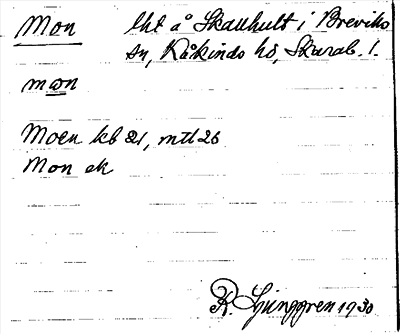 Mon lht å Skauhult i Breviks
sn, Kåkinds hd, Skarab. l.
mωn
Moen kb 21, mtl 26
Mon ek
R. Ljunggren 1930